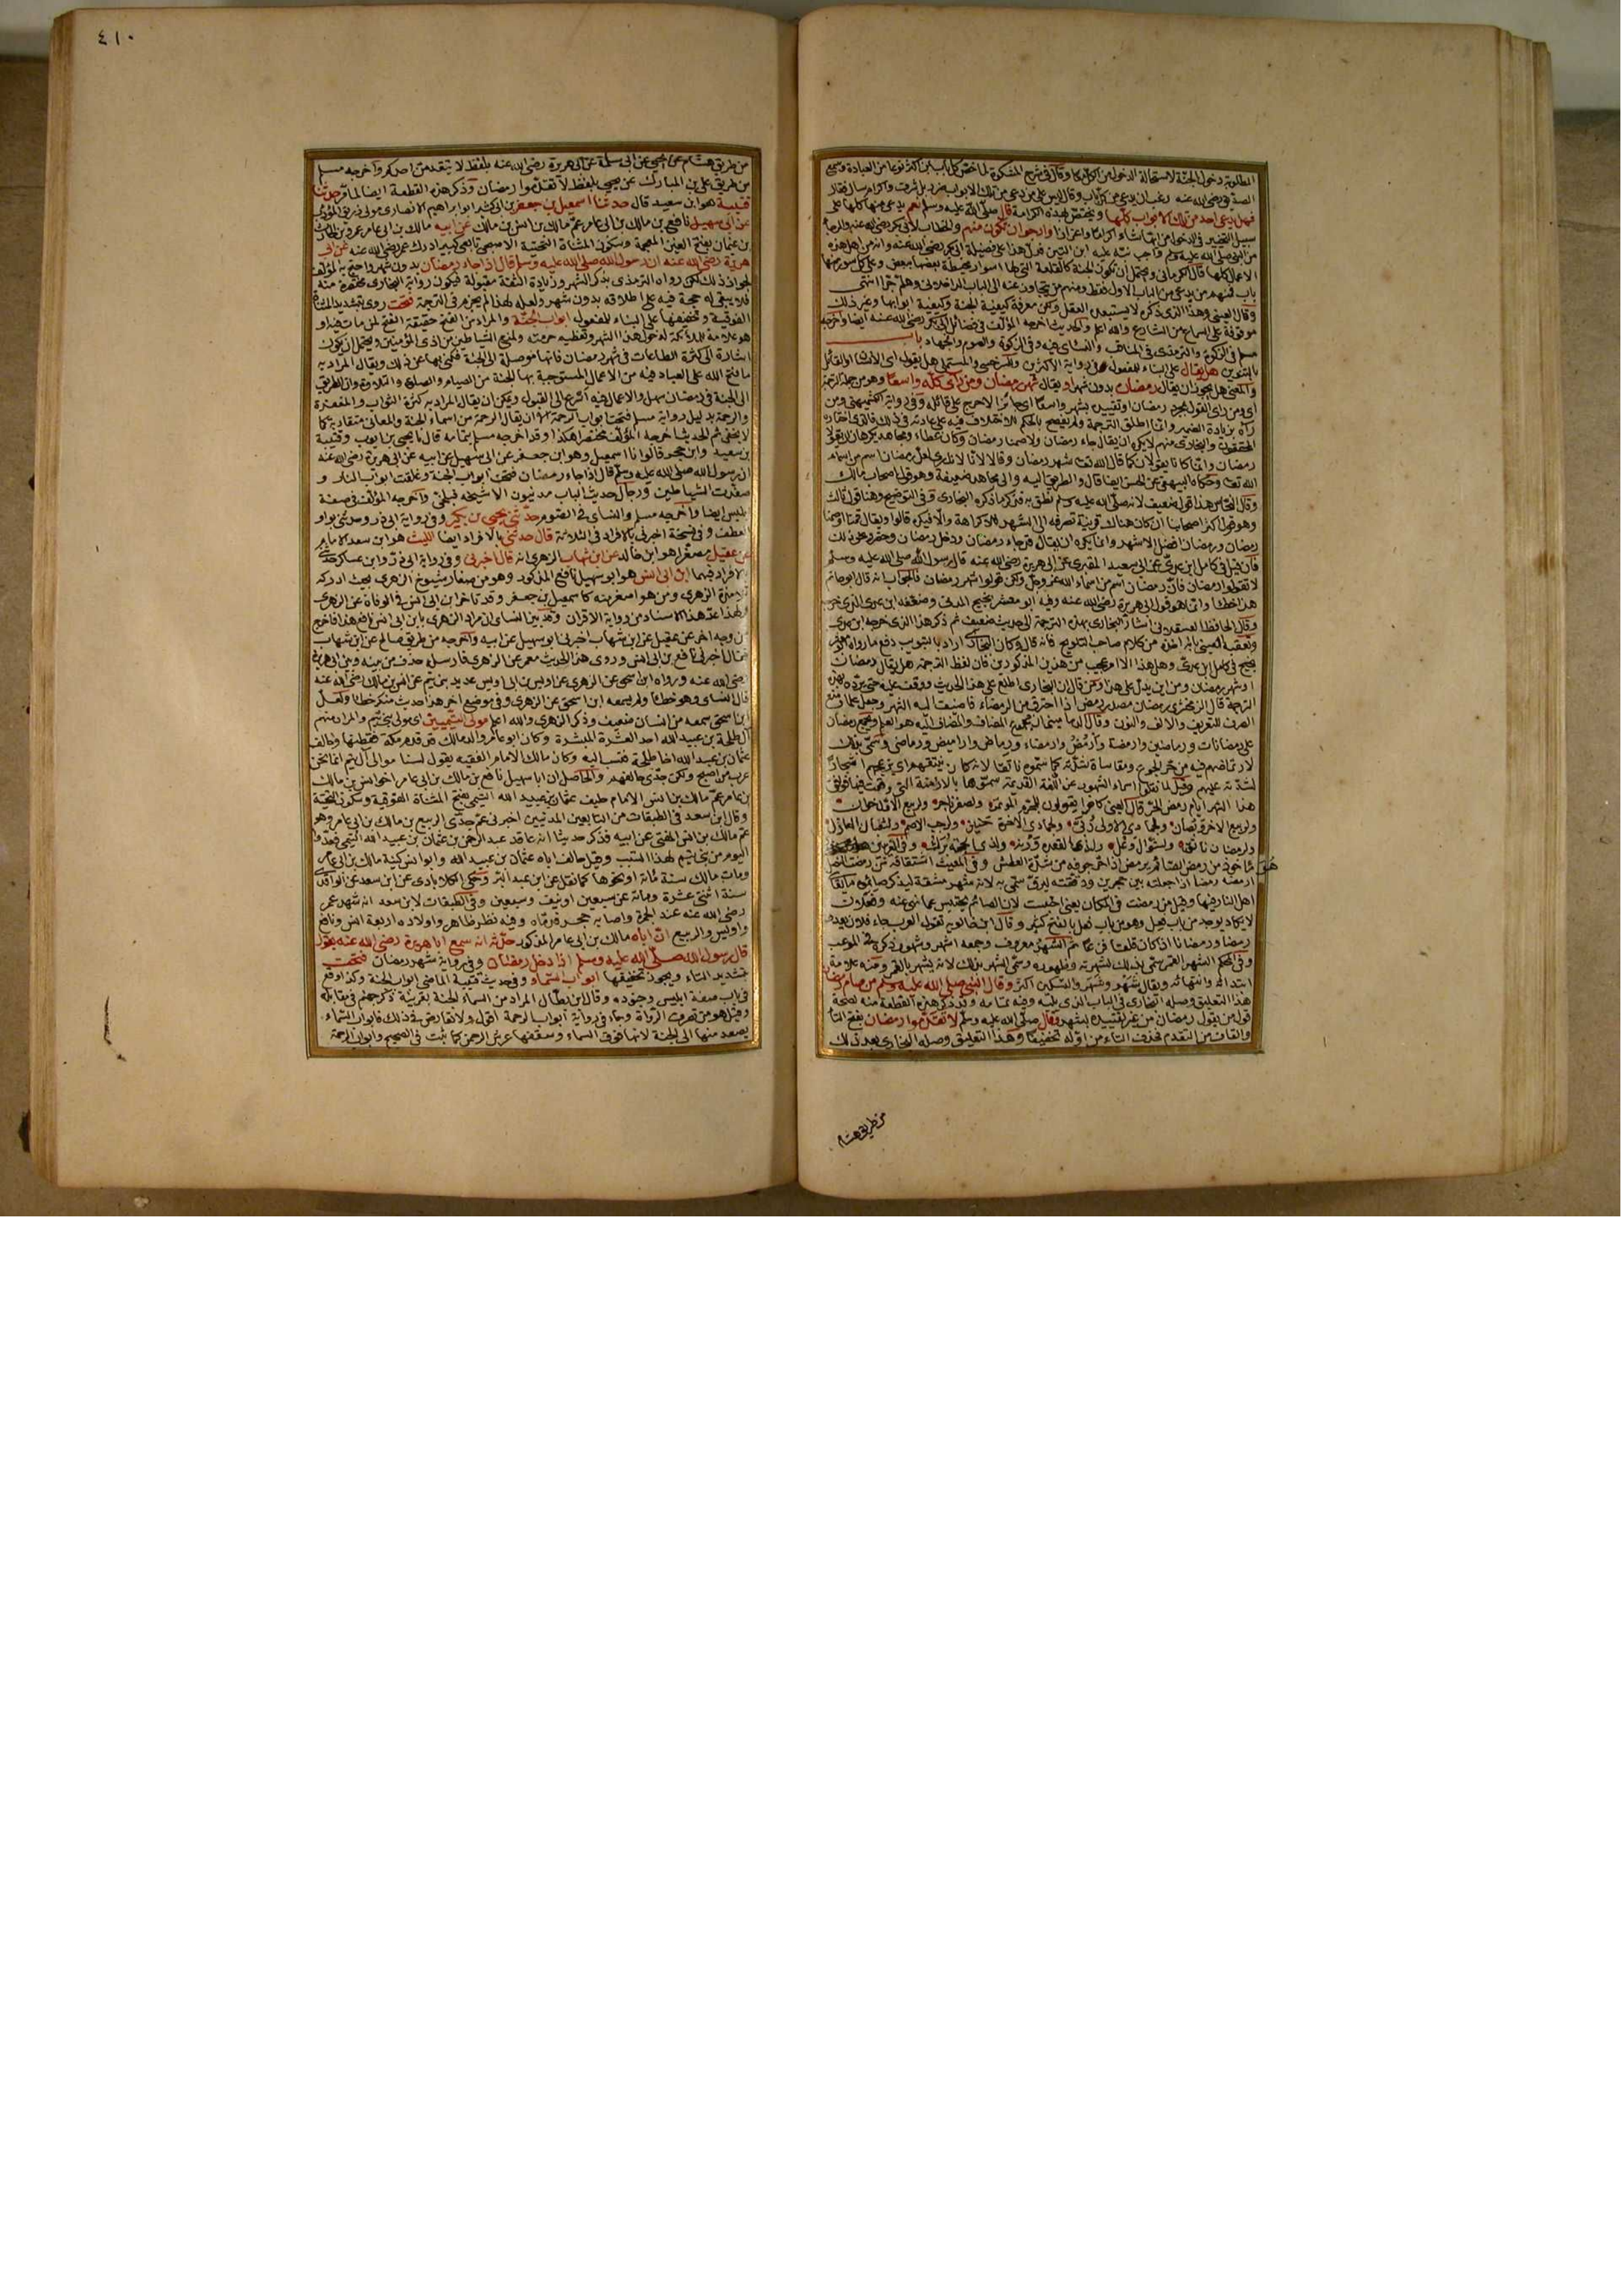 المطلوبة دخول الجنة لاستحالة الدخول من الكل معا وقال في شرح المشكوة لما خص كل باب بمن اكثر نوعا من العبادة وسمع
الصديق رضي الله عنه رغب ان يدعى من كل باب وقال ليس على من دعي من تلك الابواب ضرر بل شرف واكرام سال فقال
فهل يدعى احد من تلك الابواب كلها ويختص بهذه الكرامة قال صلى الله عليه وسلم نعم يدعى منها كلها على
سبيل التخيير في الدخول من ايها شاء اكراما واعزازا وارجو ان تكون منهم والخطاب لابي بكر رضي الله عنه والرجاء
من النبي صلى الله عليه وسلم واجب نبه عليه ابن التين فدل هذا على فضيلة ابي بكر رضي الله عنه وانه من اهل هذه
الاعمال كلها قال الكرماني ويحتمل ان تكون الجنة كالقلعة التي لها اسوار محيطة بعضها ببعض وعلى كل سور منها
باب فمنهم من يدعى من الباب الاول فقط ومنهم من يتجاوز عنه الى الباب الداخلاني وهلم جرا انتهى
وقال العيني وهذا الذي ذكره لا يستبعده العقل ولكن معرفة كيفية الجنة وكيفية ابوابها وغير ذلك
موقوفة على السماع من الشارع والله اعلم والحديث اخرجه المؤلف في فضائل ابي بكر رضي الله عنه ايضا واخرجه
مسلم في الزكوة والترمذي في المناقب والنسائي فيه وفي الزكوة والصوم والجهاد باب
بالتنوين هل يقال على البناء للمفعول وفي رواية الاكثرين وللسرخسي والمستملي هل يقول اي الانسان او القائل
والمعنى هل يجوز ان يقال رمضان بدون شهر او يقال شهر رمضان ومن راى كله واسعا وهو من جملة الترجمة
اي ومن راى القول بمجرد رمضان او تقييده بشهر واسعا اي جائزا لا حرج على قائله وفي رواية الكشميهني ومن
رآه بزيادة الضمير وانما اطلق الترجمة ولم يفصح بالحكم للاختلاف فيه على عادته في ذلك فالذي اختاره
المحققون والبخاري منهم لا يكره ان يقال جاء رمضان ولا صمنا رمضان وكان عطاء ومجاهد يكرهان ان يقولا
رمضان وانما كانا يقولان كما قال الله تعالى شهر رمضان وقالا لانا لا ندري لعل رمضان اسم من اسماء
الله تعالى وحكاه البيهقي عن الحسن ايضا قال والطريق اليه والى مجاهد ضعيفة وهو قول اصحاب مالك
وقال النحاس هذا قول ضعيف لانه صلى الله عليه وسلم نطق به فذكر ما ذكره البخاري وفي التوضيح وهنا قول ثالث
وهو قول اكثر اصحابنا ان كان هناك قرينة تصرفه الى الشهر فلا كراهة والا فيكره قالوا ويقال قمنا او صمنا
رمضان ورمضان افضل الاشهر وانما يكره ان يقال قد جاء رمضان ودخل رمضان وحضر ونحو ذلك
فان قيل في كامل ابن عدي عن ابي سعيد المقبري عن ابي هريرة رضي الله عنه قال رسول الله صلى الله عليه وسلم
لا تقولوا رمضان فان رمضان اسم من اسماء الله عز وجل ولكن قولوا شهر رمضان فالجواب انه قال ابو حاتم
هذا خطا وانما هو قول ابي هريرة رضي الله عنه وفيه ابو معشر نجيح المدني وضعفه ابن عدي الذي خرجه
وقال الحافظ العسقلاني اشار البخاري بهذه الترجمة الى حديث ضعيف ثم ذكر هذا الذي خرجه ابن عدي
وتعقبه العيني بانه اخذه من كلام صاحب التلويح فانه قال وكان البخاري اراد بالتبويب دفع ما رواه ابو معشر
نجيح في كامل ابن عدي وهل هذا الا امر عجيب من هذين المذكورين فان لفظ الترجمة هل يقال رمضان
او شهر رمضان ومن اين يدل على هذا ولئن قال ان البخاري اطلع على هذا الحديث ووقف عليه حتى يرده بهذه
الترجمة قال الزمخشري رمضان مصدر رمض اذا احترق من الرمضاء فاضيف اليه الشهر وجعل علما ومنع
الصرف للتعريف والالف والنون
على رمضانات ورماضين وارمضة وارمض وارمضاء ورماض واراميض ورماضي وسمي بذلك
لارتماضهم فيه من حر الجوع ومقاساة شدته كما سموه ناتقا لانه كان ينتقهم اي يزعجهم اضجارا
لشدته عليهم وقيل لما نقلوا اسماء الشهور عن اللغة القديمة سموها بالازمنة التي وقعت فيها فوافق
هذا الشهر ايام رمض الحر قال العيني كانوا يقولون للمحرم المؤتمر ولصفر ناجر ولربيع الاول خوان
ولربيع الاخر وبصان ولجمادى الاولى ربى ولجمادى الاخرة حنين ولرجب الاصم ولشعبان العاذل
ولرمضان ناتق ولشوال وعل ولذي القعدة ورنة ولذي الحجة برك وفي الغريبين هو
مأخوذ من رمض الصائم يرمض اذا حر جوفه من شدة العطش وفي المغيث اشتقاقه من رمضت النصل
ارمضه رمضا اذا جعلته بين حجرين ودققته ليرق سمي به لانه شهر مشقة ليذكر صائموه ما يقاسي
اهل النار فيها وقيل من رمضت في المكان يعني احتبست لان الصائم يحتبس عما نهي عنه وفعلان
لا يكاد يوجد من باب فعل وهو من باب فعل بالفتح كثير وقال ابن خالويه تقول العرب جاء فلان يعدو
رمضا ورمضانا اذا كان قلقا فزعا ثم الشهر معروف وجمعه اشهر وشهور ذكره في الموعب
وفي المحكم الشهر القمر سمي بذلك لشهرته وظهوره وسمي الشهر بذلك لانه يشهر بالقمر ومنه علامة
ابتدائه وانتهائه ويقال شهر وشهر والتسكين اكثر وقال النبي صلى الله عليه وسلم من صام رمضان
هذا التعليق وصله البخاري في الباب الذي يليه وفيه تمامه وقد ذكر هذه القطعة منه لصحة
قول من يقول رمضان من غير تقييده بشهر وقال صلى الله عليه وسلم لا تقدموا رمضان بفتح التاء
والقاف من التقدم فحذف التاء من اوله تخفيفا وهذا التعليق وصله البخاري بعد ذلك
من طريق هشام
٤١٠
من طريق هشام عن يحيى عن ابي سلمة عن ابي هريرة رضي الله عنه بلفظ لا يتقدمن احدكم واخرجه مسلم
من طريق علي بن المبارك عن يحيى بلفظ لا تقدموا رمضان وذكر هذه القطعة ايضا لما مر حدثنا
قتيبة هو ابن سعيد قال حدثنا اسمعيل بن جعفر بن ابي كثير ابو ابراهيم الانصاري مولى زريق المؤدب
عن ابي سهيل نافع بن مالك بن ابي عامر عم مالك بن انس بن مالك عن ابيه مالك بن ابي عامر عمرو بن الحارث
بن غيمان بفتح الغين المعجمة وسكون المثناة التحتية الاصبحي تابعي كبير ادرك عمر رضي الله عنه عن ابي
هريرة رضي الله عنه ان رسول الله صلى الله عليه وسلم قال اذا جاء رمضان بدون شهر واحتج به المؤلف
لجواز ذلك لكن رواه الترمذي بذكر الشهر وزيادة الثقة مقبولة فيكون رواية البخاري مختصرة منه
فلا يبقى له حجة فيه على اطلاقه بدون شهر ولعله لهذا لم يجزم في الترجمة فتحت روي بتشديد المثناة
الفوقية وتخفيفها على البناء للمفعول ابواب الجنة والمراد من الفتح حقيقة الفتح لمن مات فيه او
هو علامة للملائكة لدخول هذا الشهر وتعظيم حرمته ولمنع الشياطين من اذى المؤمنين ويحتمل ان يكون
اشارة الى كثرة الطاعات في شهر رمضان فانها موصلة الى الجنة فكنى بها عن ذلك ويقال المراد به
ما فتح الله على العباد فيه من الاعمال المستوجبة بها الجنة من الصيام والصلوة والتلاوة وان الطريق
الى الجنة في رمضان سهل والاعمال فيه اسرع الى القبول ويمكن ان يقال المراد به كثرة الثواب والمغفرة
والرحمة بدليل رواية مسلم فتحت ابواب الرحمة الا ان يقال الرحمة من اسماء الجنة والمعاني متقاربة كما
لا يخفى ثم الحديث اخرجه المؤلف مختصرا هكذا وقد اخرجه مسلم بتمامه قال نا يحيى بن ايوب وقتيبة
بن سعيد وابن حجر قالوا نا اسمعيل وهو ابن جعفر عن ابي سهيل عن ابيه عن ابي هريرة رضي الله عنه
ان رسول الله صلى الله عليه وسلم قال اذا جاء رمضان فتحت ابواب الجنة وغلقت ابواب النار و
صفدت الشياطين ورجال حديث الباب مدنيون الا شيخه فبلخي واخرجه المؤلف في صفة
ابليس ايضا واخرجه مسلم والنسائي في الصوم حدثني يحيى بن بكير وفي رواية ابي ذر وحدثني بواو
العطف وفي نسخة اخبرني بالافراد في الثلاثة قال حدثني بالافراد ايضا الليث هو ابن سعد الامام
عن عقيل مصغرا هو ابن خالد عن ابن شهاب الزهري انه قال اخبرني وفي رواية ابي ذر وابن عساكر حدثني
بالافراد فيهما ابن ابي انس هو ابو سهيل نافع المذكور وهو من صغار شيوخ الزهري بحيث ادركه
تلامذة الزهري ومن هو اصغر منه كاسمعيل بن جعفر وقد تاخر ابن ابي انس في الوفاة عن الزهري
ولهذا عد هذا الاسناد من رواية الاقران وقد بين النسائي ان مراد الزهري بابن ابي انس نافع هذا فاخرج
من وجه اخر عن عقيل عن ابن شهاب اخبرني ابو سهيل عن ابيه واخرجه من طريق صالح عن ابن شهاب
فقال اخبرني نافع بن ابي انس وروى هذا الحديث معمر عن الزهري فارسله حذف من بينه وبين ابي هريرة
رضي الله عنه ورواه ابن اسحق عن الزهري عن اويس بن ابي اويس عديد بني تيم عن انس بن مالك رضي الله عنه
قال النسائي وهو خطا ولم يسمعه ابن اسحق عن الزهري وفي موضع اخر هذا حديث منكر خطا ولعل
ابن اسحق سمعه من انسان ضعيف وذكر الزهري والله اعلم مولى التيميين اي مولى بني تيم والمراد منهم
آل طلحة بن عبيد الله احد العشرة المبشرة وكان ابو عامر والد مالك قد قدم مكة فقطنها وحالف
عثمان بن عبيد الله اخا طلحة فنسب اليه وكان مالك الامام الفقيه يقول لسنا موالى آل تيم انما نحن
عرب من اصبح ولكن جدي حالفهم والحاصل ان ابا سهيل نافع بن مالك بن ابي عامر اخو انس بن مالك
بن عامر عم مالك بن انس الامام حليف عثمان بن عبيد الله التيمي بفتح المثناة الفوقية وسكون التحتية
وقال ابن سعد في الطبقات من التابعين المدنيين اخبرني عم جدي الربيع بن مالك بن ابي عامر وهو
عم مالك بن انس المفتي عن ابيه فذكر حديثا انه عاقد عبد الرحمن بن عثمان بن عبيد الله التيمي فعدوا
اليوم من بني تيم لهذا السبب وقيل حالف اباه عثمان بن عبيد الله وابو انس كنية مالك بن ابي عامر
ومات مالك سنة مائة او نحوها كما نقل عن ابن عبد البر وحكى الكلاباذي عن ابن سعد عن الواقدي
سنة اثنتي عشرة ومائة عن سبعين او نيف وسبعين وفي الطبقات لابن سعد انه شهد عمر
رضي الله عنه عند الجمرة واصابه حجر فدماه وفيه نظر ظاهر واولاده اربعة انس ونافع
واويس والربيع ان اباه مالك بن ابي عامر المذكور حدثه انه سمع ابا هريرة رضي الله عنه يقول
قال رسول الله صلى الله عليه وسلم اذا دخل رمضان وفي رواية شهر رمضان فتحت
بتشديد التاء ويجوز تخفيفها ابواب السماء وفي حديث قتيبة الماضي ابواب الجنة وكذا وقع
في باب صفة ابليس وجنوده وقال ابن بطال المراد من السماء الجنة بقرينة ذكر جهنم في مقابله
وقيل هو من تصرف الرواة وجاء في رواية ابواب الرحمة اقول ولا تعارض في ذلك فابواب السماء
يصعد منها الى الجنة لانها فوق السماء وسقفها عرش الرحمن كما ثبت في الصحيح وابواب الرحمة